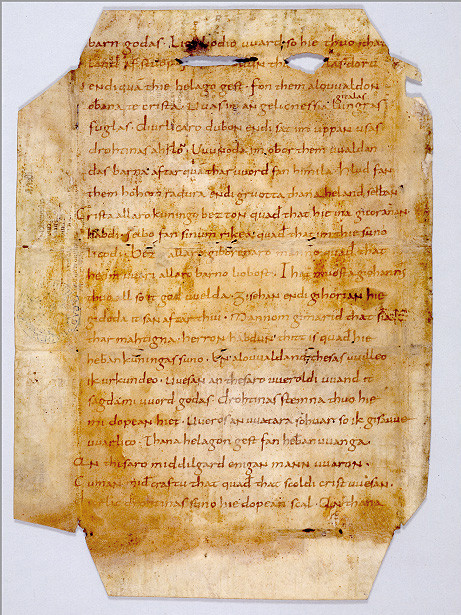 barn godas. Liudio uuard so hie thuo that
land afstuop
endi quā thie helago gest. fon them alouualdon
obana te crista. Uuas im an gelicnessia lungras gitalas
fuglas. diurlicaro dubon endi sat im uppan usas
drohtinas ahslo. Uuunoda im obar them uualdan
das barna. aftar quā thar uuord fan himila. hlud fan
them hohon radura. endi gruotta thana heland selban
Crista allaro kuningo bezton quađ that hie ina gicoranan
habdi selbo fan sinum rikea. quađ that im thie suno
licodi bezt allaro giboranaro manno quađ that
he im uuari allaro barno liobost. That muosta giohannis
thuo all so it god uuelda. Gisehan endi gihorian hie
gededa it san aftar thiu. Mannom gimarid that sia
thar mahtigna. herron habdun. thit is quađ hie
heban kuningas suno. En alouualdand. thesas uuilleo
ik urkundeo. Uuesan an thesaro uueroldi uuand it
sagda mi uuord godas. drohtinas stemna thuo hie
mi dopean hiet. Uueros an uuatara so huar so ik gisauue
uuarlico. Thana helagon gest fan heban uuanga.
An thesaro middilgard enigan mann uuaron.
Cuman mid craftu that quađ that scoldi crist uuesan.
diurlic drohtinas suno hie dopean scal. An thana